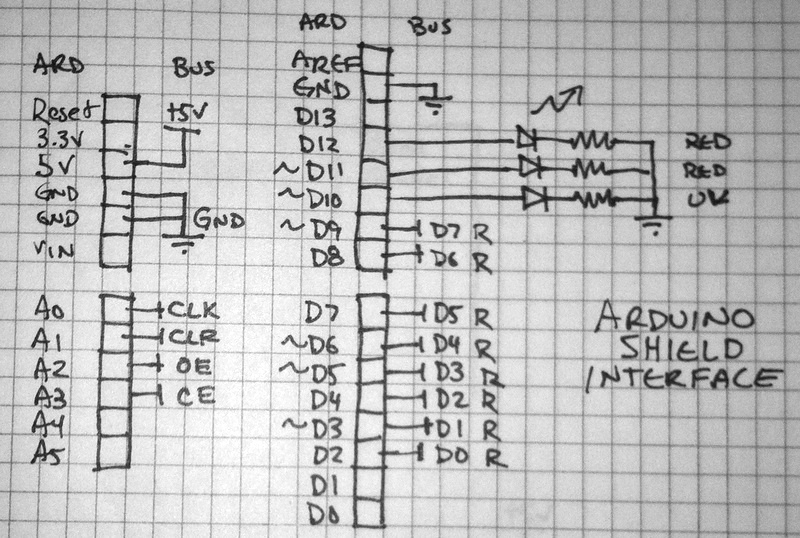 ARD BUS
Reset +5V
3.3V
5V
GND
GND GND
VIN
A0 CLK
A1 CLR
A2 OE
A3 CE
A4
A5
ARD BUS
AREF
GND
D13
D12 RED
~D11 RED
~D10
~D9 D7 R
D8 D6 R
D7 D5 R
~D6 D4 R
~D5 D3 R
D4 D2 R
~D3 D1 R
D2 D0 R
D1
D0
ARDUINO
SHIELD
INTERFACE